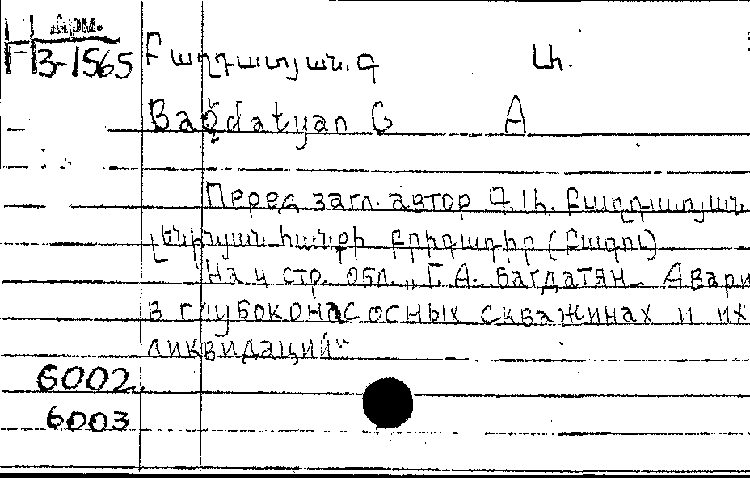 Арм.
H3-1565 Բաղդատյան. Գ Ա.
Bağdatyan G A
Перед загл. автор Գ. Ա. Բաղդատյան.
լենինյան հանքի բրիգադիր (Բաքու)
На 4 стр. обл. „Г. А. Багдатян. Авари
в глубоконасосных скважинах и их
ликвидаций"
6002.
6003